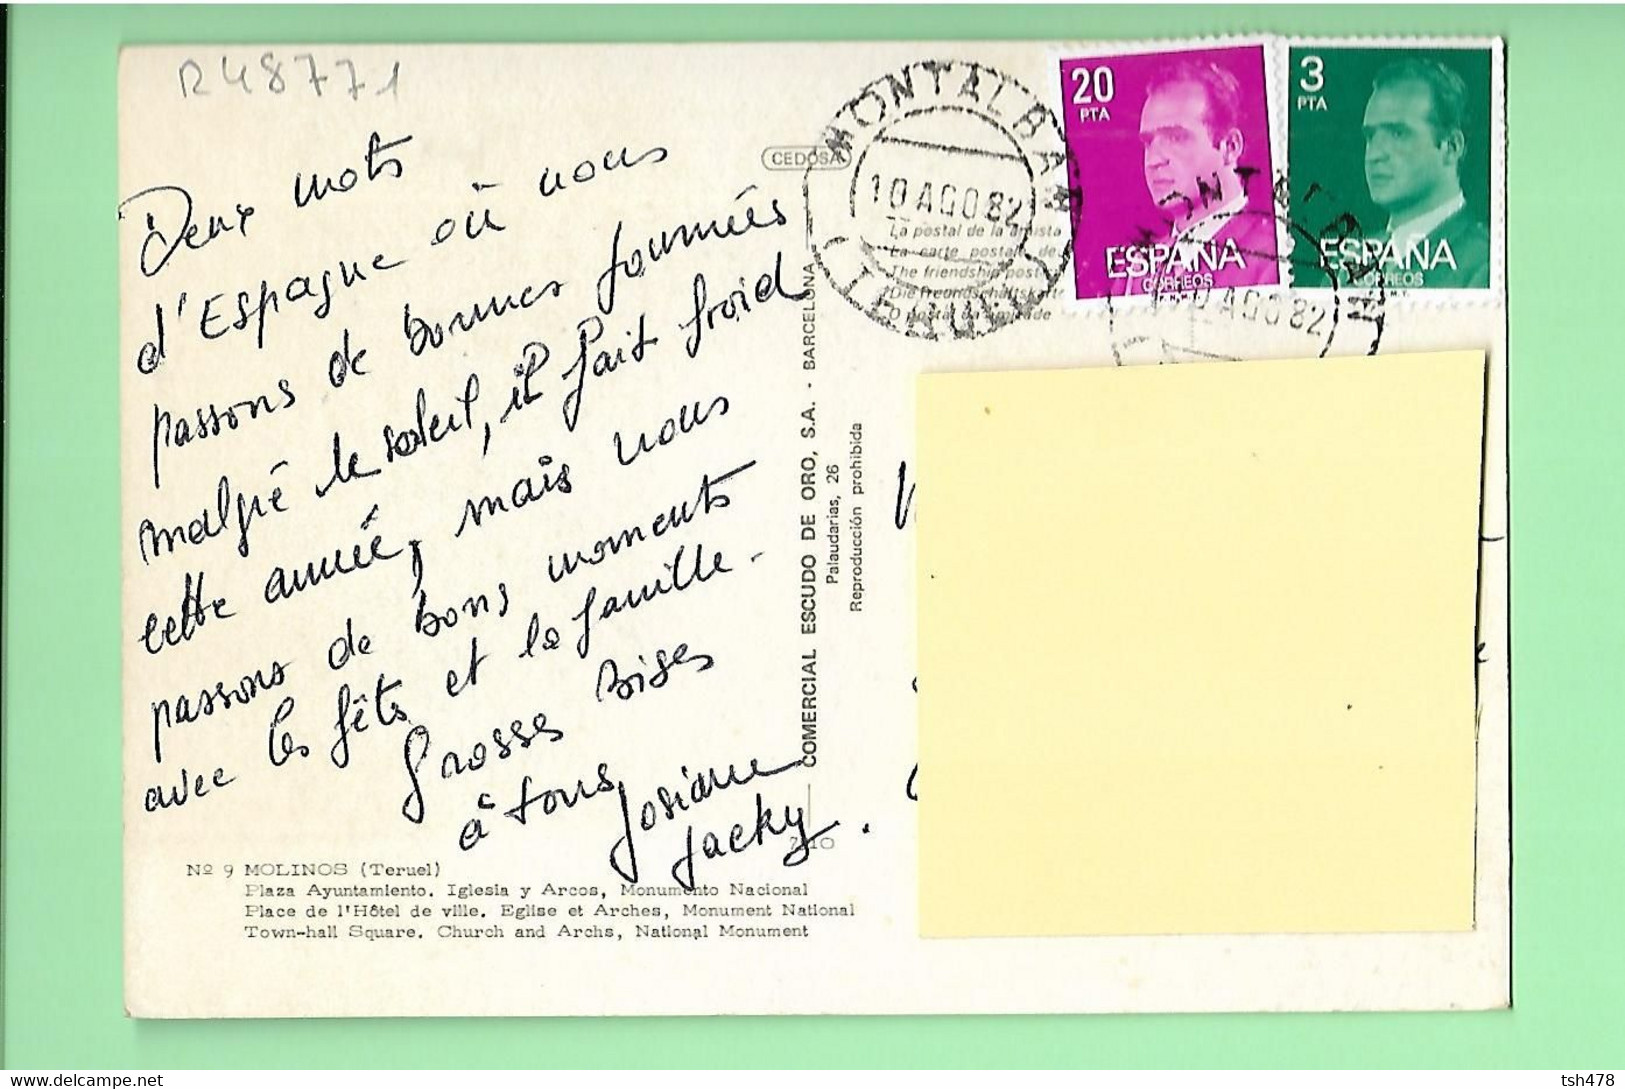 R48771
Deux mots
d'Espagne où nous
passons de bonnes journées
malgré le soleil, il fait froid
cette année, mais nous
passons de bons moments
avec les fêtes et la famille.
Grosses Bises
à tous
Josiane
Jacky.
CEDOSA
COMERCIAL ESCUDO DE ORO, S.A. - BARCELONA
Palaudarias, 26
Reproducción prohibida
MONTALBAN
10 AGO 82
(TERUEL)
La postal de la amista
La carte postale de
The friendship post
Die Freundschaftskarte
O postal da amizade
20
PTA
ESPAÑA
CORREOS
3
PTA
ESPAÑA
CORREOS
F.N.M.T.
MONTALBAN
10 AGO 82
Nº 9 MOLINOS (Teruel)
Plaza Ayuntamiento. Iglesia y Arcos, Monumento Nacional
Place de l'Hôtel de ville. Eglise et Arches, Monument National
Town-hall Square. Church and Archs, National Monument
tsh478